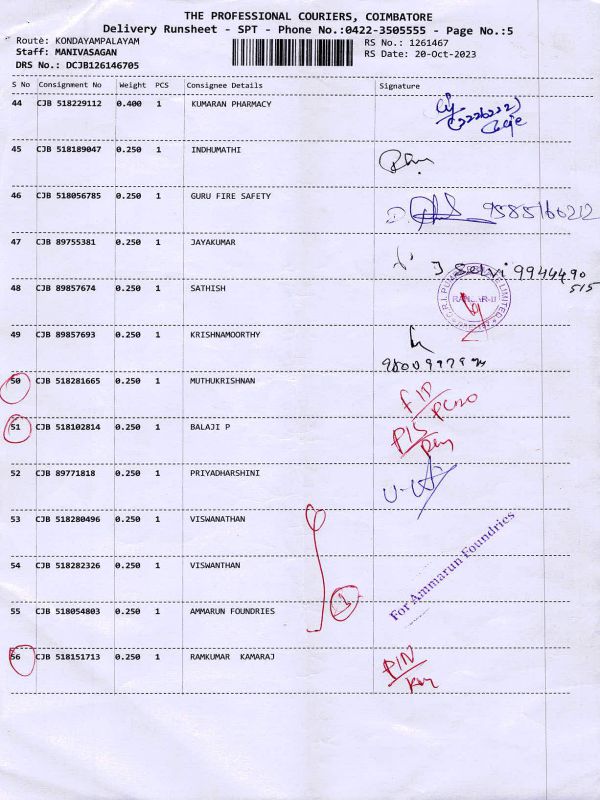 THE PROFESSIONAL COURIERS, COIMBATORE
Delivery Runsheet - SPT - Phone No.:0422-3505555 - Page No.:5
Route: KONDAYAMPALAYAM
RS No.: 1261467
Staff: MANIVASAGAN
RS Date: 20-Oct-2023
DRS No.: DCJB126146705
S No Consignment No Weight PCS Consignee Details Signature
44 CJB 518229112 0.400 1 KUMARAN PHARMACY
45 CJB 518189047 0.250 1 INDHUMATHI
46 CJB 518056785 0.250 1 GURU FIRE SAFETY
47 CJB 89755381 0.250 1 JAYAKUMAR
J Selvi 9944490
515
48 CJB 89857674 0.250 1 SATHISH
49 CJB 89857693 0.250 1 KRISHNAMOORTHY
50 CJB 518281665 0.250 1 MUTHUKRISHNAN
51 CJB 518102814 0.250 1 BALAJI P
52 CJB 89771818 0.250 1 PRIYADHARSHINI
53 CJB 518280496 0.250 1 VISWANATHAN
54 CJB 518282326 0.250 1 VISWANTHAN
For Ammarun Foundries
55 CJB 518054803 0.250 1 AMMARUN FOUNDRIES
56 CJB 518151713 0.250 1 RAMKUMAR KAMARAJ